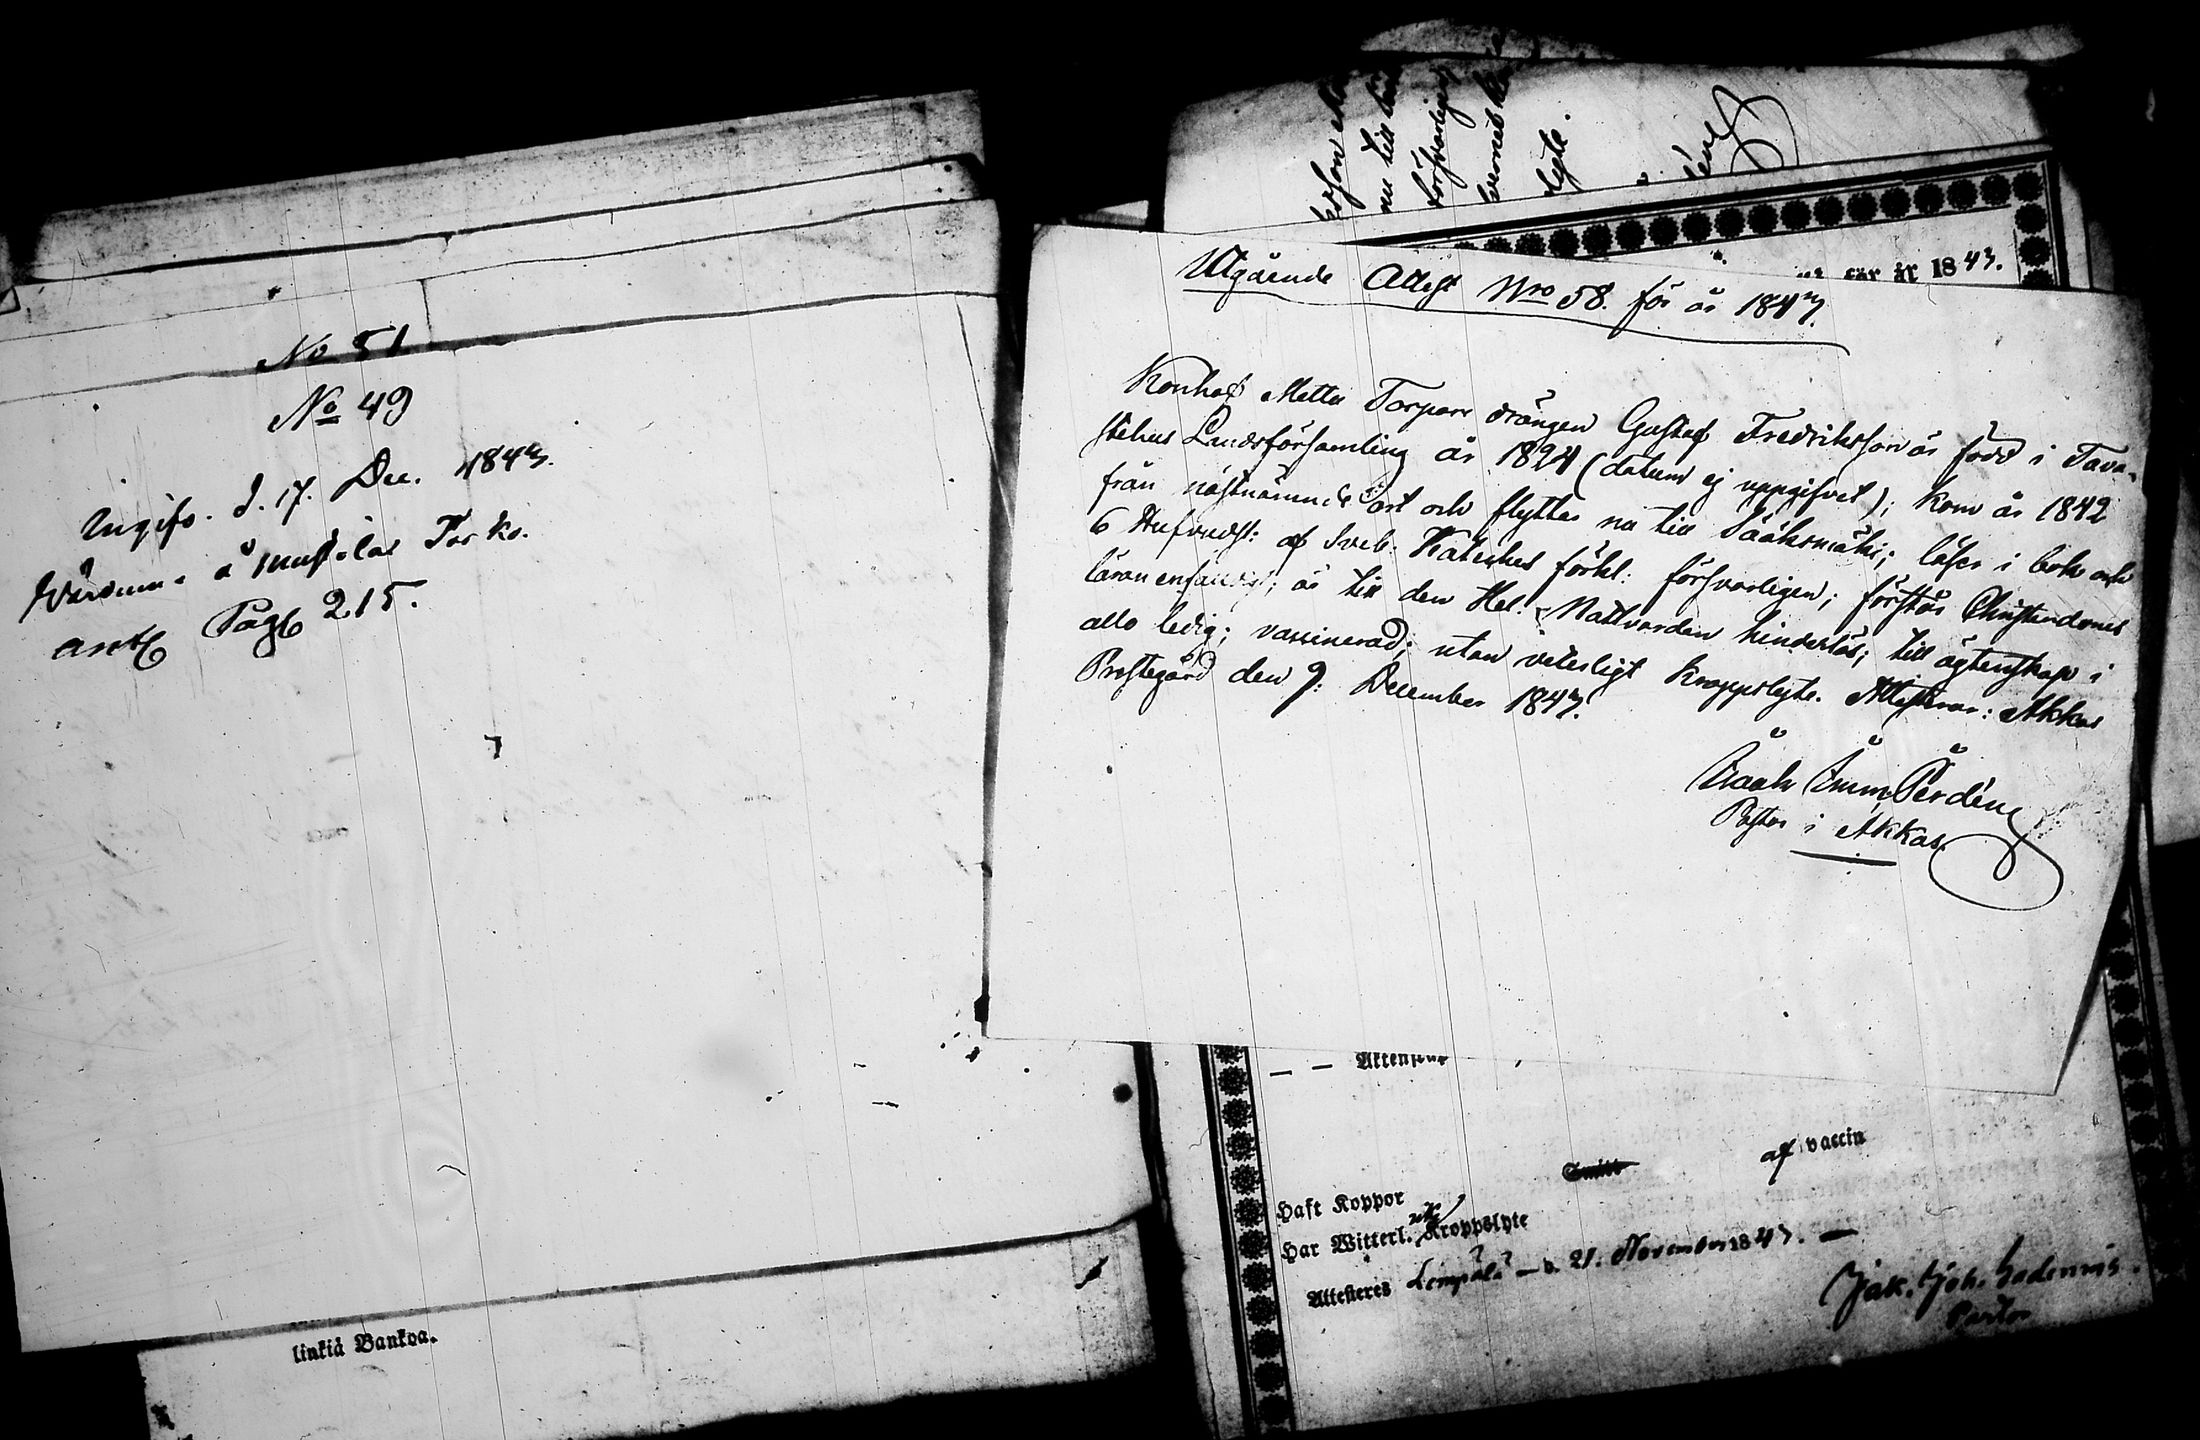 No 51
No 49
Ingifv. d. 17. Dec. 1843.
å Torko.
Pag 215.
linkiä Bankoa.
för år 1843.
Utgående Attest Nro 58. för år 1843.
Konhof Mattu Torpare drängen Gustaf Fredriksson är född i Tava-
stehus Landsförsamling år 1824 (datum ej uppgifvet); kom år 1842
från nästnämnde ort och flyttar nu till Sääksmäki; läser i bok och
6 Hufvudst: af Sveb. Kateches förkl: försvarligen; förstår Christendoms
läran enfaldigt; är till den Hel. Nattvarden hinderlös; till ägtenskap i
allo ledig; vaccinerad; utan veterligt kroppslyte. Attesterar: Akkas
Prestegård den 9: December 1843.
Isaak Imm. Perdén
Pastor i Akkas.
lyte.
Haft Koppor af vaccin
Har Witterl. Kroppslyte
Attesteres Lempälä d. 21. November 1843.
Jak. Joh.
Pastor